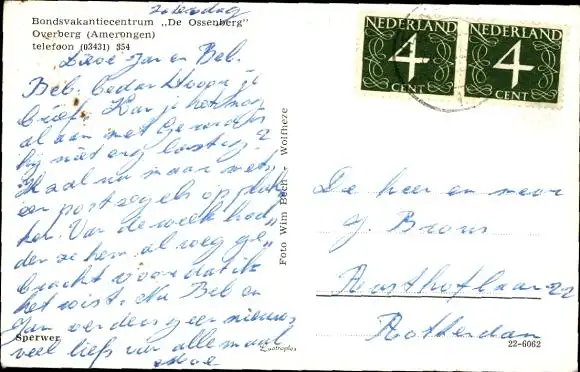 Zaterdag
Bondsvakantiecentrum „De Ossenberg"
Overberg (Amerongen)
telefoon (03431) 354
Lieve Jan en Bel.
Bel. bedankt voor je
brief. Kan je het nog
al aan met
hij niet erg lastig?
Ik zal nu maar weer
een postzegels op plak
ken. Van de week had
den ze hem al weg ge
bracht voor dat ik
het wist. Nu Bel en
Jan verders geen nieuws
veel liefs van allemaal
Moe
Sperwer
Foto Wim Beth - Wolfheze
NEDERLAND
4
CENT
NEDERLAND
4
CENT
De heer en mevr
J. Brons
22
Rotterdam
22-6062